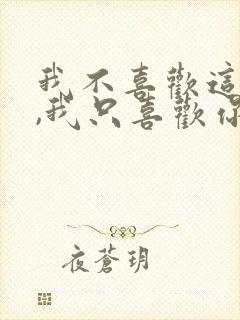 我不喜歡這
,我只喜歡你
夜蒼玥